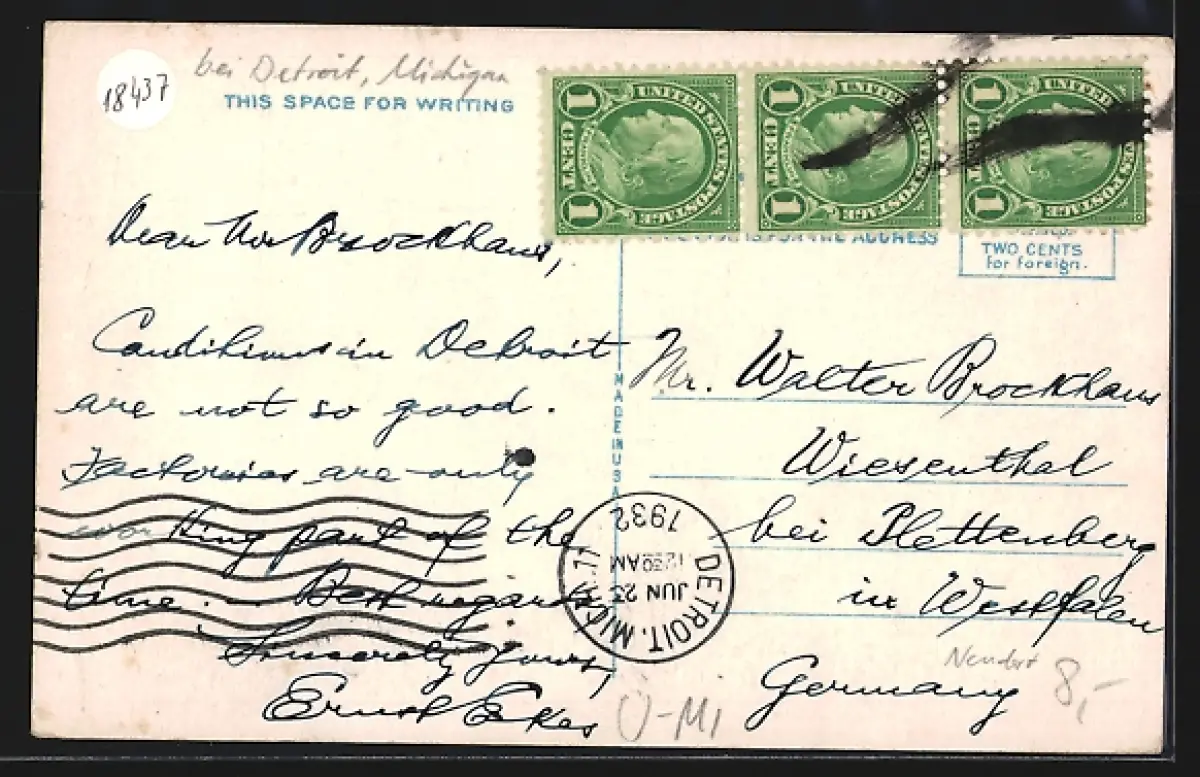 18437
bei Detroit, Michigan
THIS SPACE FOR WRITING
UNITED STATES POSTAGE
1 CENT 1
UNITED STATES POSTAGE
1 CENT 1
UNITED STATES POSTAGE
1 CENT 1
IS FOR THE ADDRESS
TWO CENTS
for foreign.
Dear Mr Brockhaus,
Conditions in Detroit
are not so good.
Factories are only
working part of the
time. Best regards
Sincerely yours,
Ernst Ekes
MADE IN USA
Mr. Walter Brockhaus
Wiesenthal
bei Plettenberg
in Westfalen
Germany
DETROIT, MICH. 11
JUN 23
12 30 AM
1932
8,-
U-MI